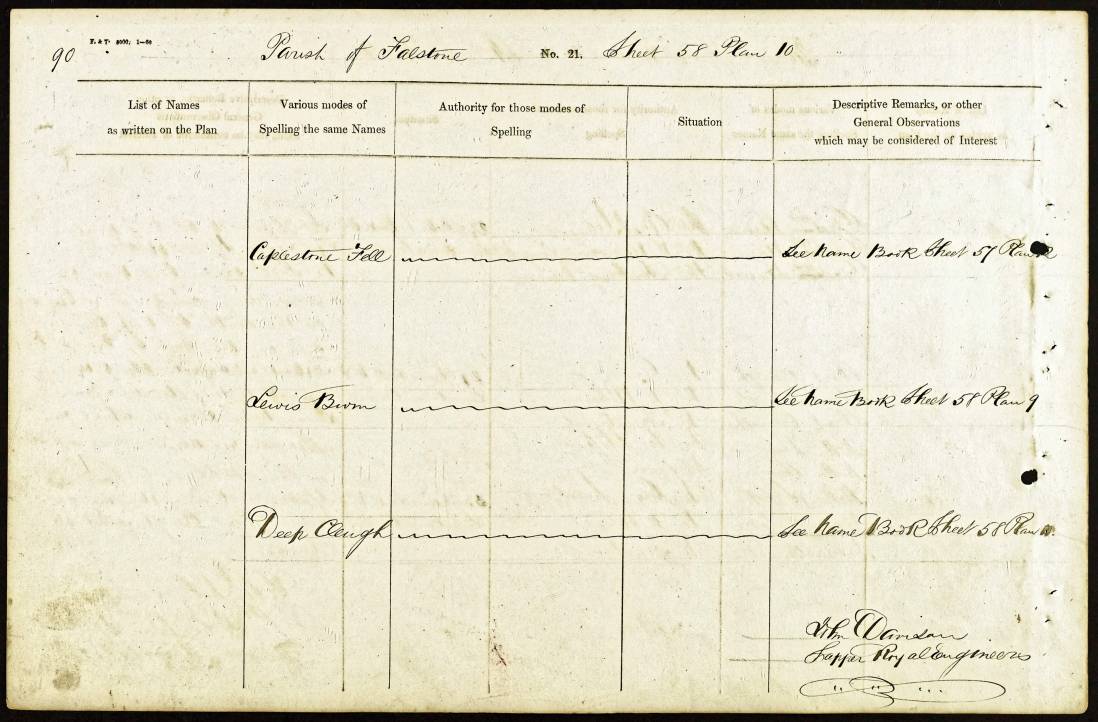 90
F. & T. 8000; 1—60
Parish of Falstone No. 21. Sheet 58 Plan 10
List of Names as written on the Plan
Various modes of Spelling the same Names
Authority for those modes of Spelling
Situation
Descriptive Remarks, or other General Observations which may be considered of Interest
Caplestone Fell See Name Book Sheet 57 Plan
Lewis Burn See Name Book Sheet 58 Plan 9
Deep Cleugh See Name Book Sheet 58 Plan
John Davison
Sapper Royal Engineers